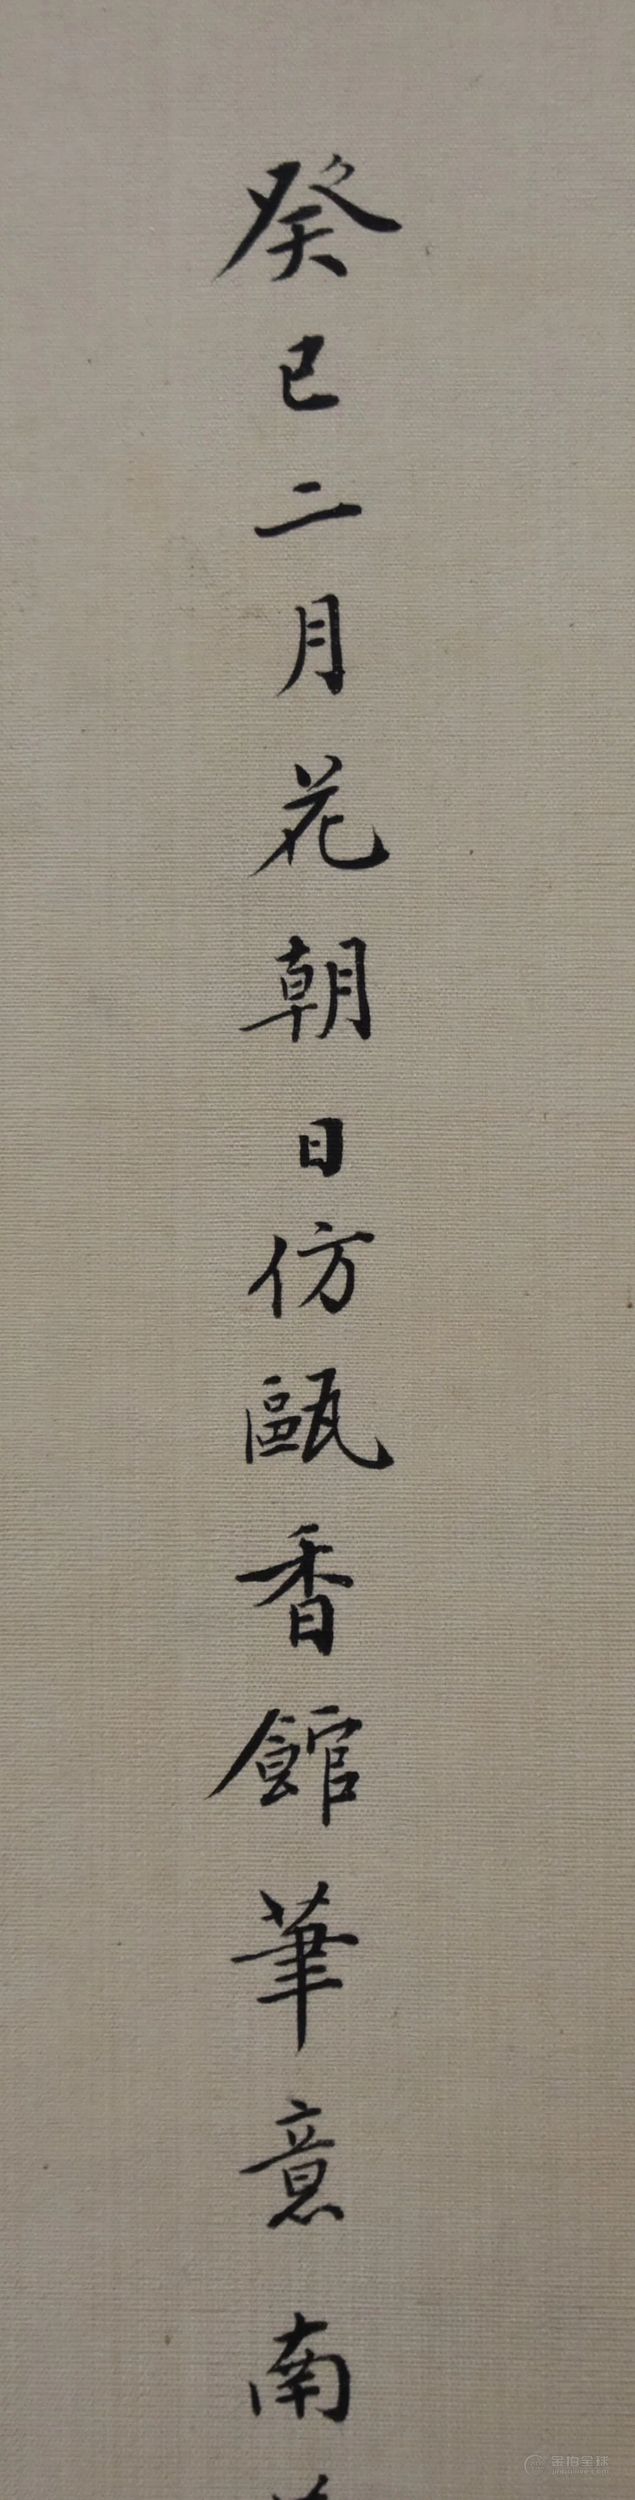 癸巳二月花朝日仿甌香館筆意南
金拍全球